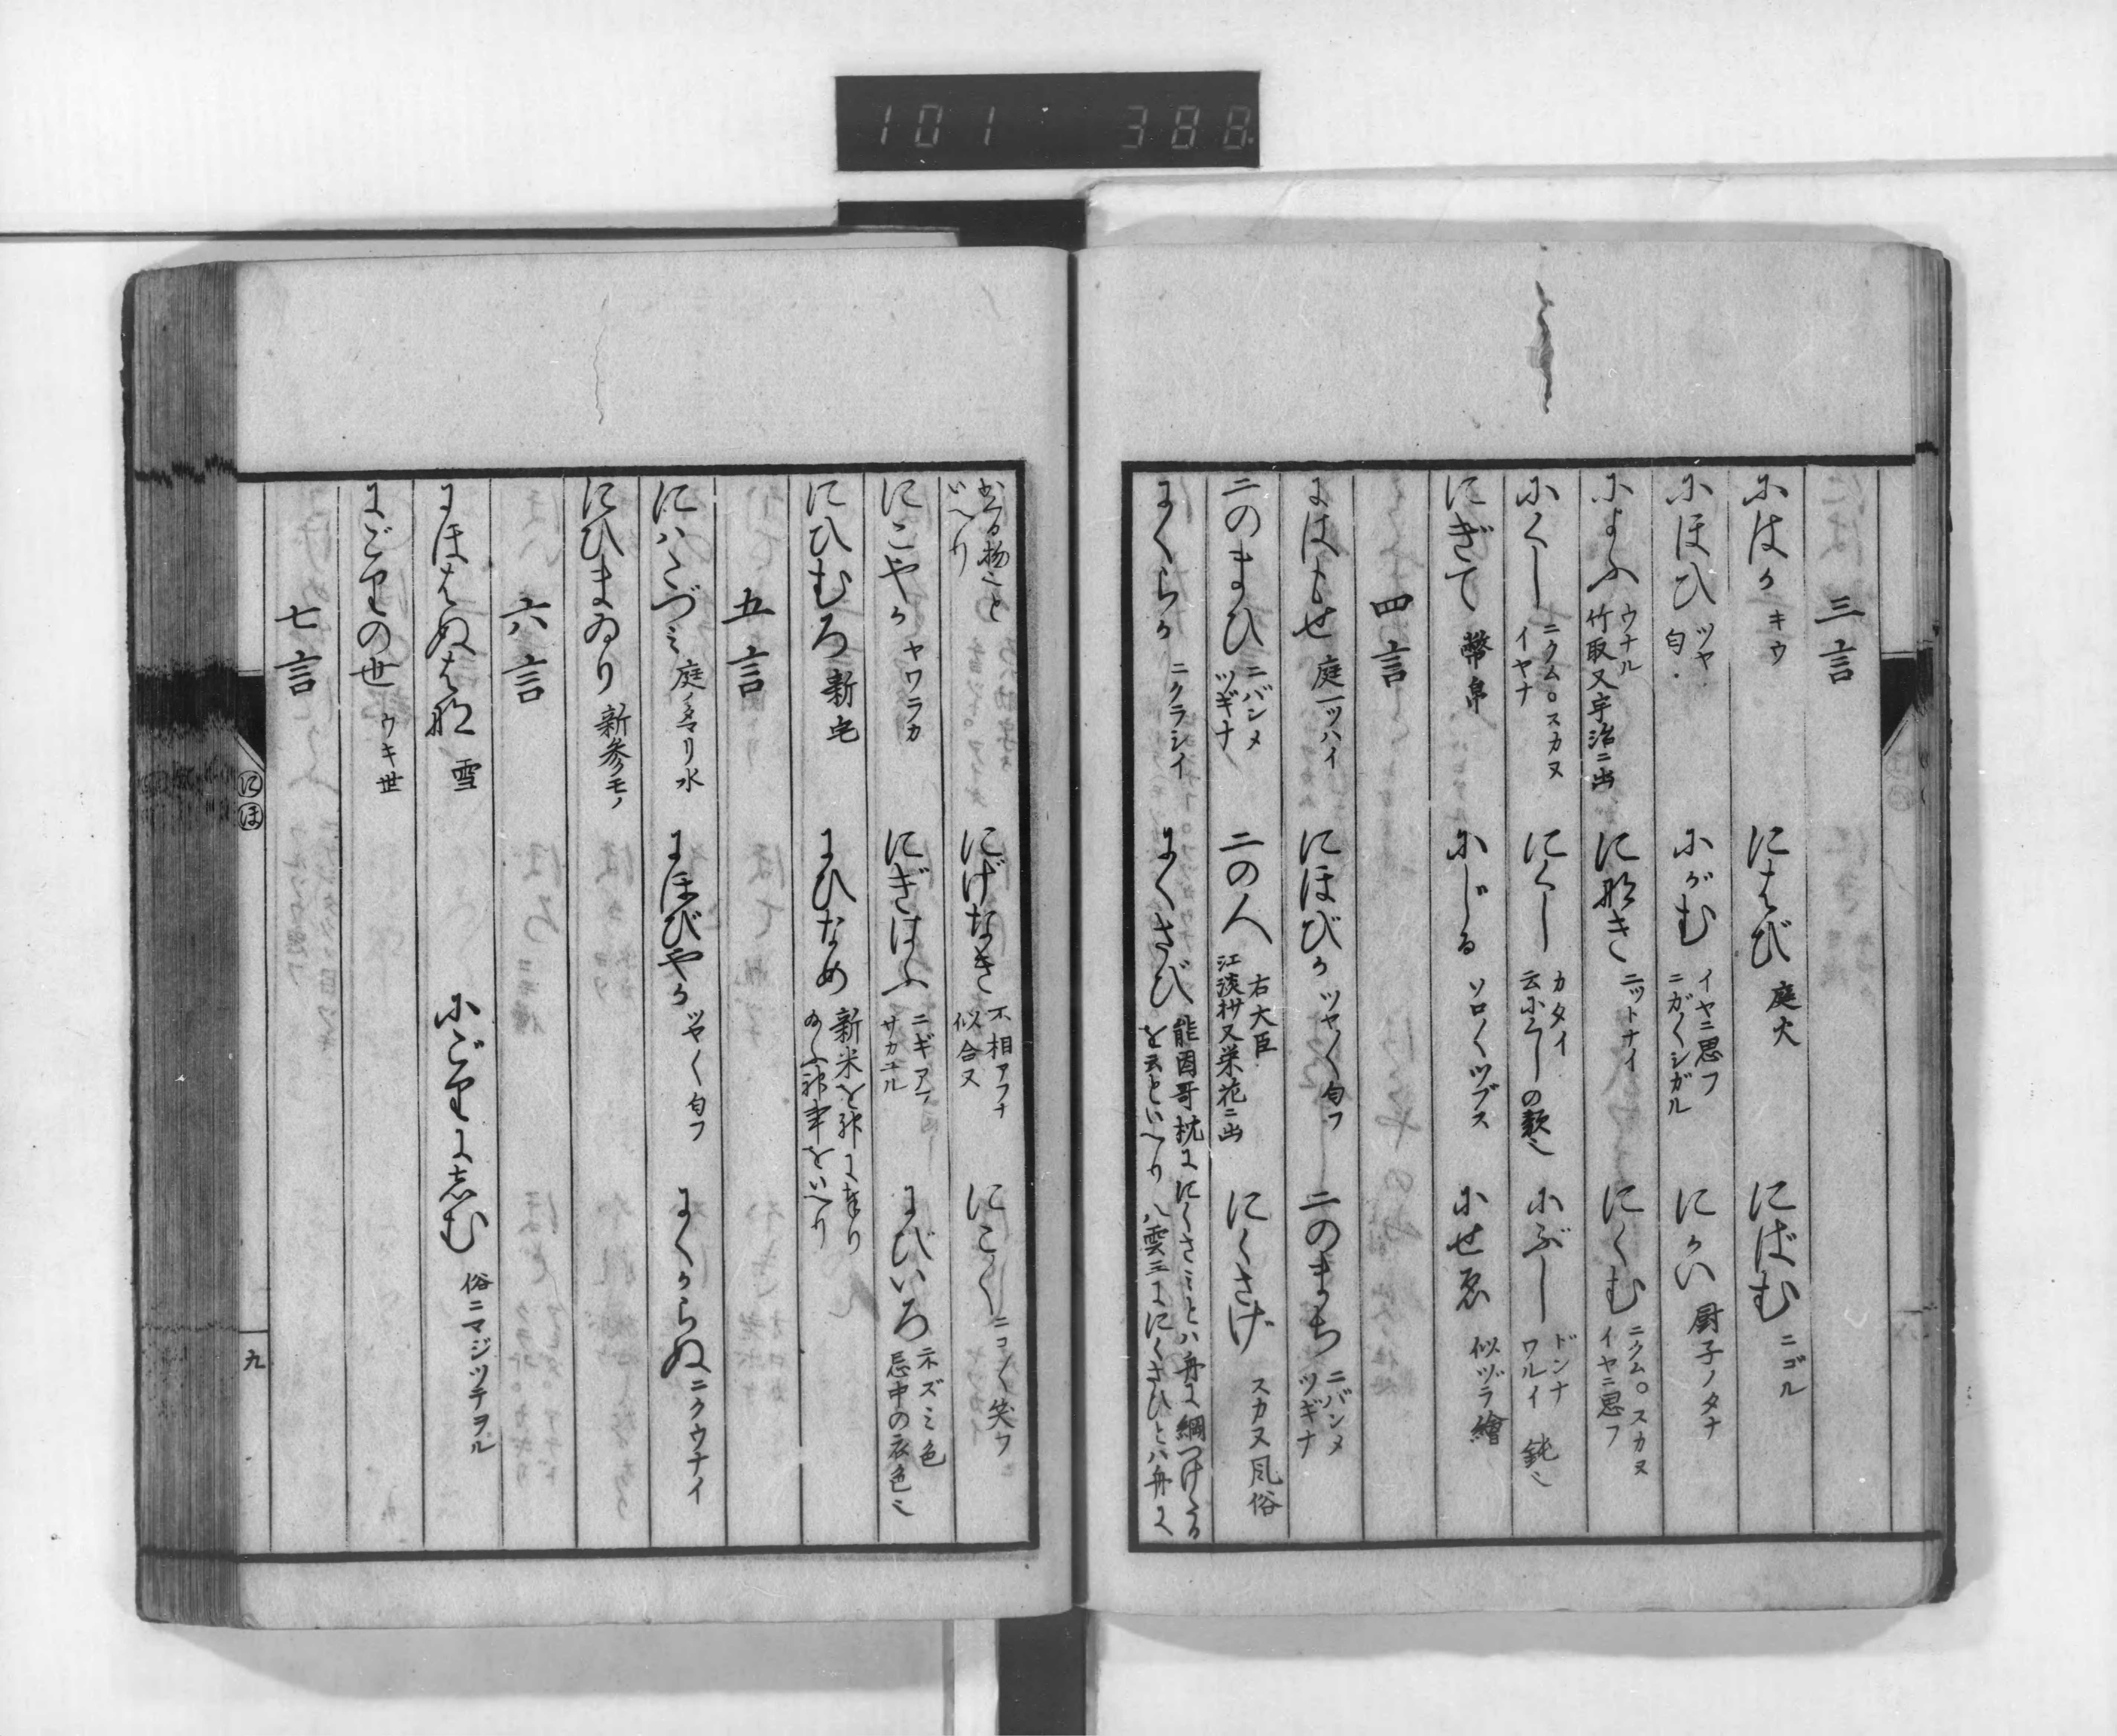 101 388
三言
にはか キウ
にはび 庭火
にばむ ニゴル
にほひ ツヤ 匂
にがむ イヤニ思フ ニガ〱シガル
にかい 厨子ノタナ
によふ ウナル 竹取又宇治ニ出
になき ニツトナイ
にくむ ニクム。スカヌ イヤニ思フ
にくし ニクム。スカヌ イヤナ
にくし カタイ 云にくしの類ミ
にぶし ドンナ ワルイ 鈍ミ
にぎて 幣帛
にじる ソロ〱ツブス
にせゑ 似ヅラ繪
四言
にはもせ 庭一ツハイ
にほびか ツヤ〱匂フ
二のまち ニバンメ ツギナ
二のまひ ニバンメ ツギナ
二の人 右大臣 江淡抄又栄花ニ出
にくさげ スカヌ風俗
にくらか ニクラシイ
にくさび 能因哥枕ににくさミとハ舟に綱つけたる
を云といへり 八雲三ににくさひとハ舟に
かくる物こと
いへり
にげなき 不相アフナ 似合ヌ
にこ〱 ニコ〱笑フ
にこやか ヤワラカ
にぎはふ ニギアフ サカエル
にびいろ ネズミ色 忌中の衣色ミ
にひむろ 新宅
にひなめ 新米を神に奉り
給ふ神事をいへり
五言
にハたづミ 庭ノタマリ水
にほびやか ツヤ〱匂フ
にくからぬ ニクウナイ
にひまゐり 新参モノ
六言
にほはぬはな 雪
にごりにしむ 俗ニマジツテヲル
にごりの世 ウキ世
七言
にほ
九